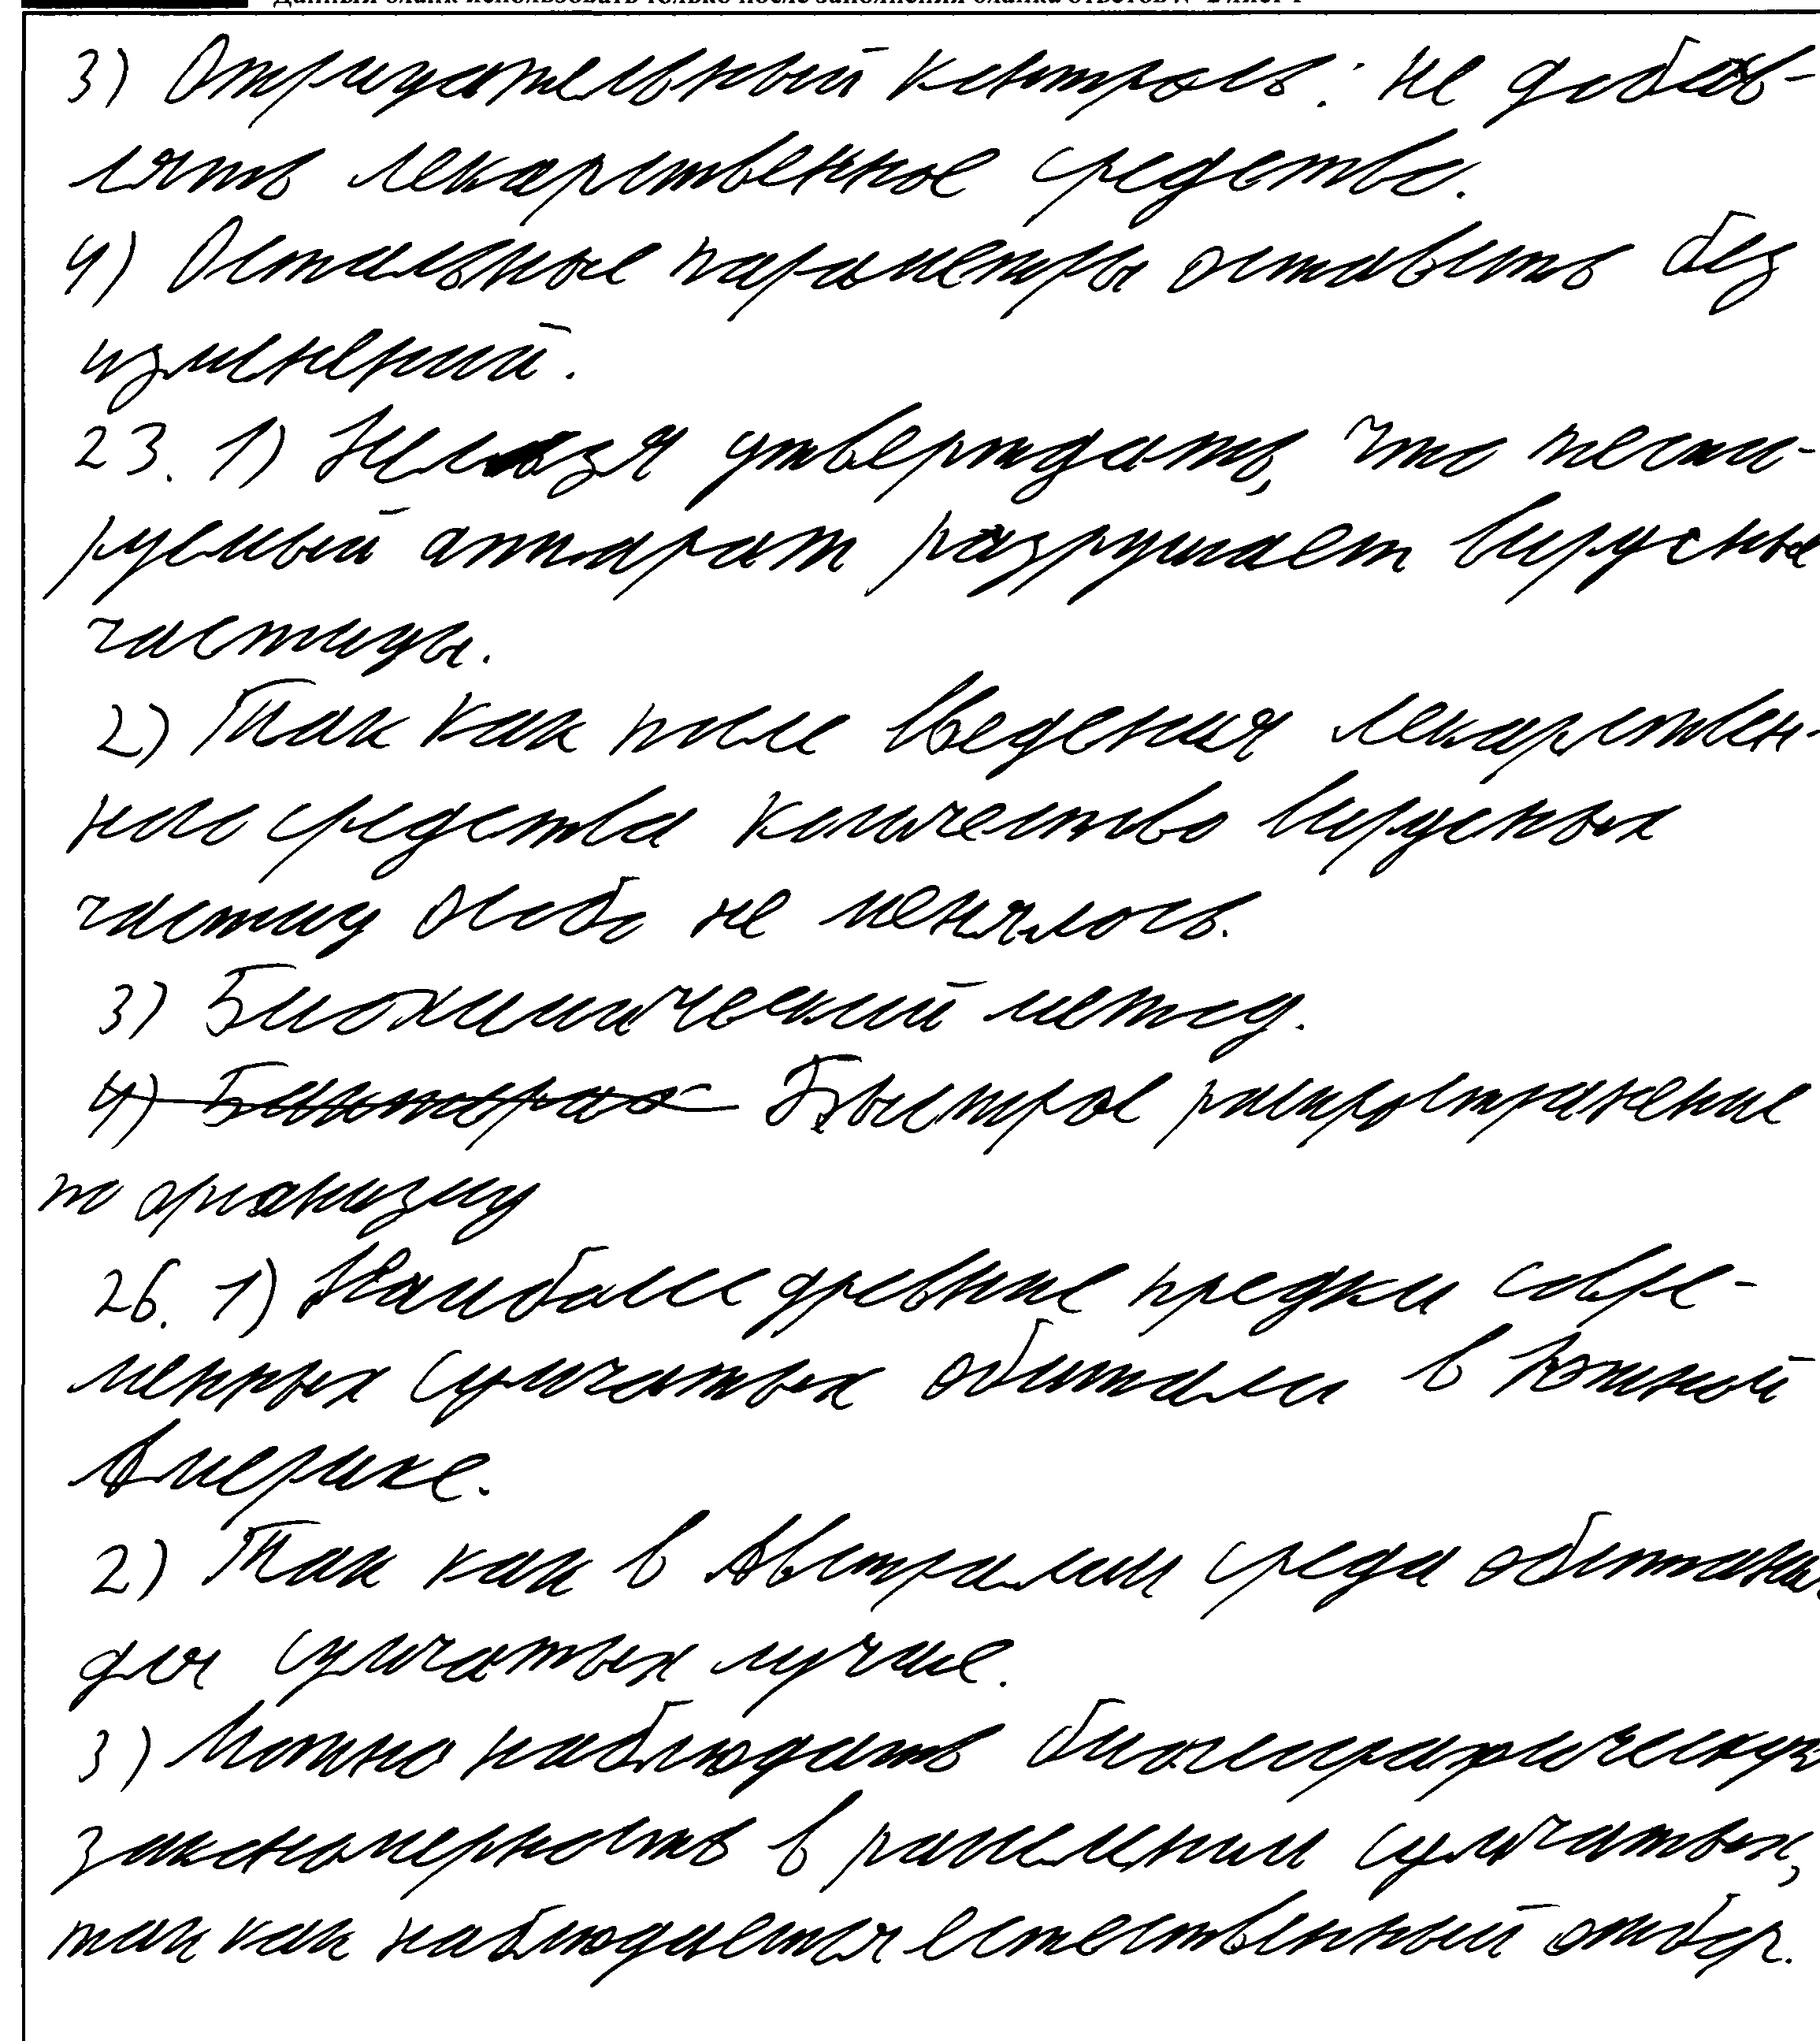 Данный бланк использовать только после заполнения бланка ответов № 2 лист 1
3) Отрицательный контроль: не добав-
лять лекарственное средство.
4) Остальные параметры оставить без
изменений.
23. 1) Нельзя утверждать, что тести-
руемый аппарат разрушает вирусные
частицы.
2) Так как после введения лекарствен-
ного средства количество вирусных
частиц особо не менялось.
3) Биохимический метод.
4) Быстрое распространение
по организму
26. 1) Наиболее древние предки совре-
менных сумчатых обитали в Южной
Америке.
2) Так как в Австралии среда обитания
для сумчатых лучше.
3) Можно наблюдать биогеографическую
закономерность в расселении сумчатых,
так как наблюдается естественный отбор.